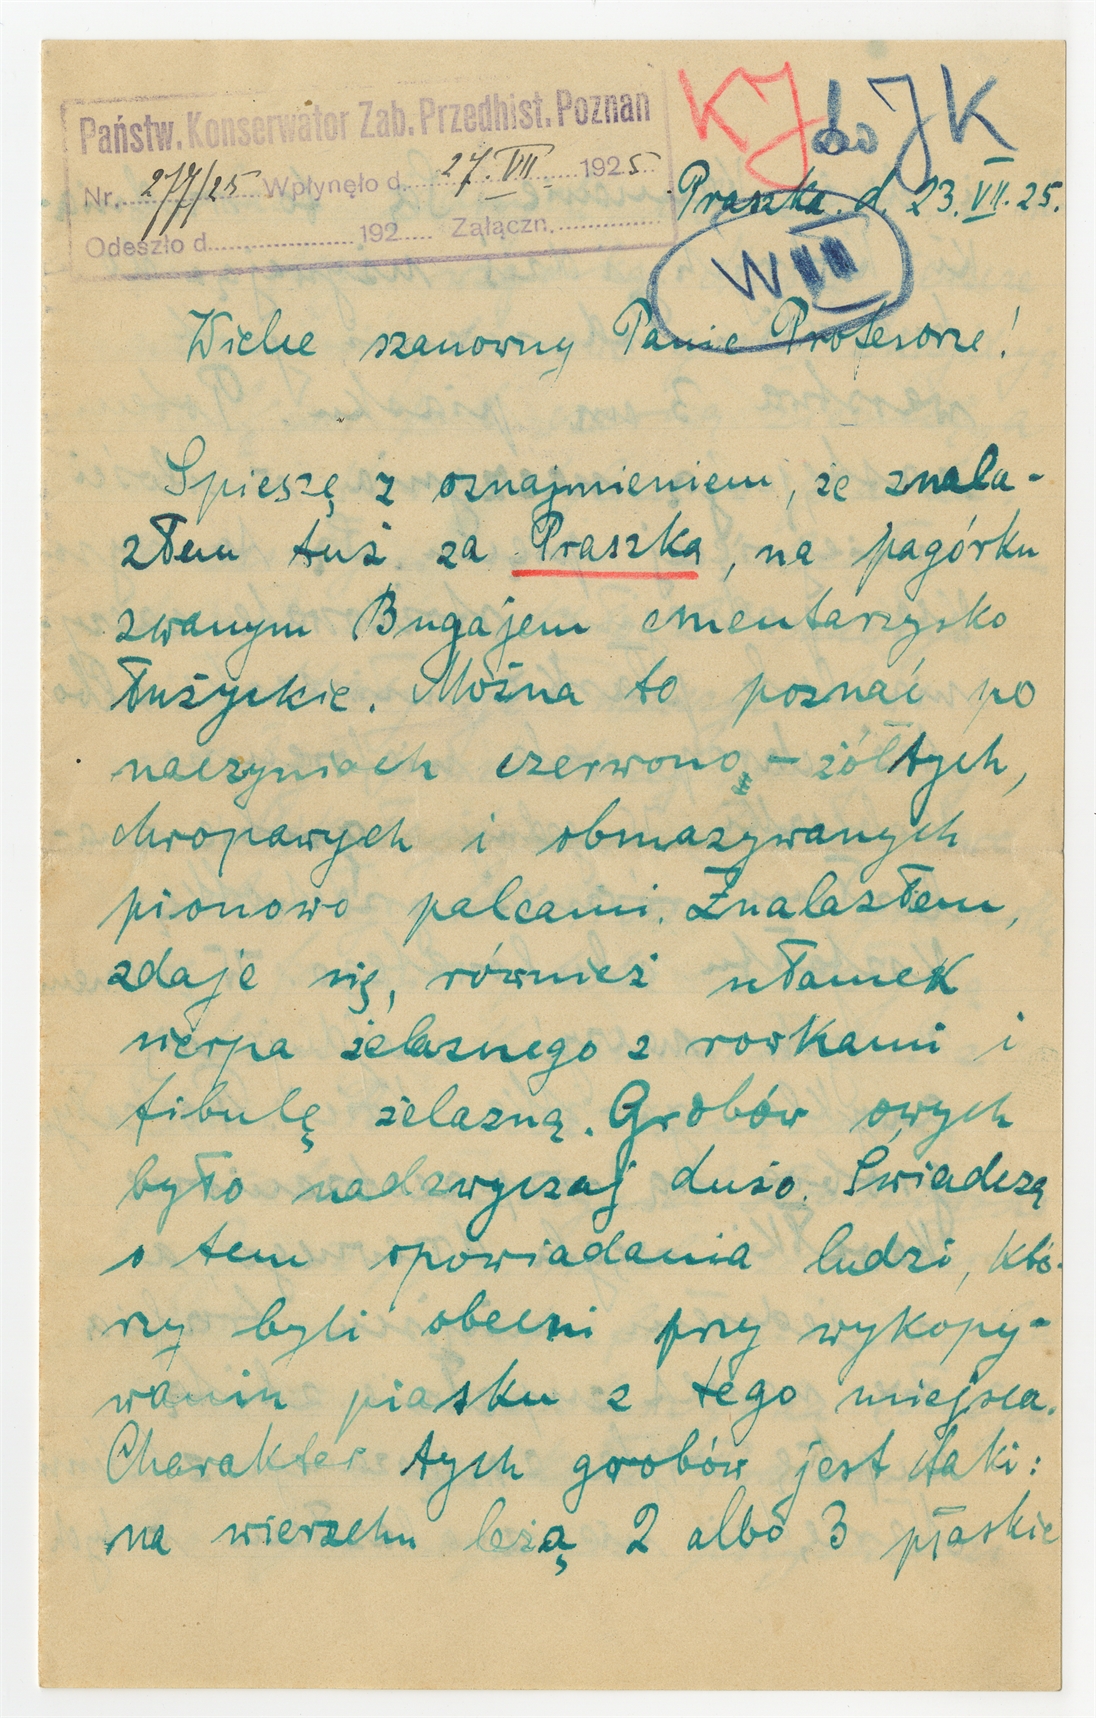 Państw. Konserwator Zab. Przedhist. Poznań
Nr. 277/25 Wpłynęło d. 27. VII 1925
Odeszło d. 192 Załączn.
KJ do JK
Praszka. d. 23. VII. 25.
W III
Wielce szanowny Panie Profesorze!
Spieszę z oznajmieniem, że znala-
złem tuż za Praszką, na pagórku
zwanym Bugajem cmentarzysko
łużyckie. Można to poznać po
naczyniach czerwono - żółtych,
chropawych i obmazywanych
pionowo palcami. Znalazłem,
zdaje się, również ułamek
sierpa żelaznego z rowkami i
fibulę żelazną. Grobów owych
było nadzwyczaj dużo. Świadczą
o tem opowiadania ludzi, któ-
rzy byli obecni przy wykopy-
waniu piasku z tego miejsca.
Charakter tych grobów jest taki:
na wierzchu leżą 2 albo 3 płaskie